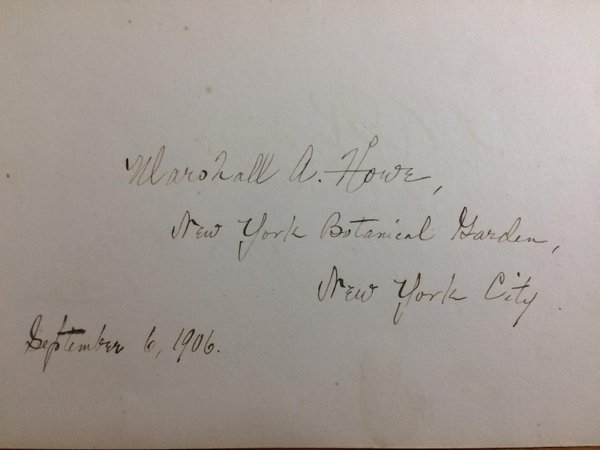 Marshall A. Howe,
New York Botanical Garden,
New York City.
September 6, 1906.